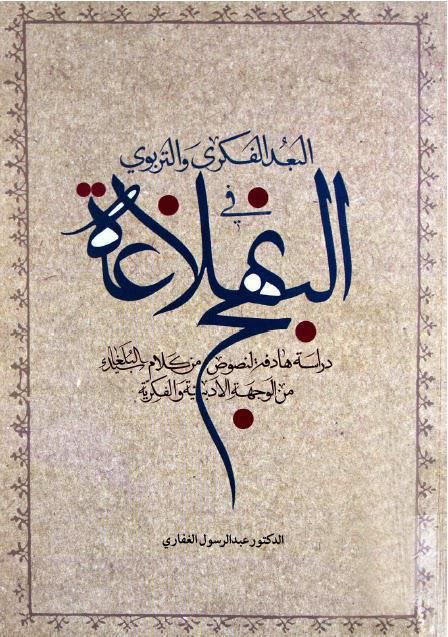 البعد الفكرى والتربوي
في
نهج البلاغة
دراسة هادفة لنصوص من كلام سيد البلغاء
من الوجهة الادبية والفكرية
الدكتور عبدالرسول الغفاري